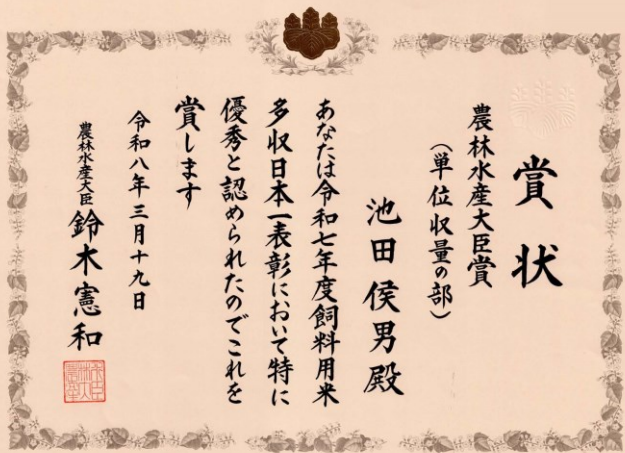 賞状
農林水産大臣賞
（単位収量の部）
池田侯男殿
あなたは令和七年度飼料用米
多収日本一表彰において特に
優秀と認められたのでこれを
賞します
令和八年三月十九日
農林水産大臣 鈴木憲和